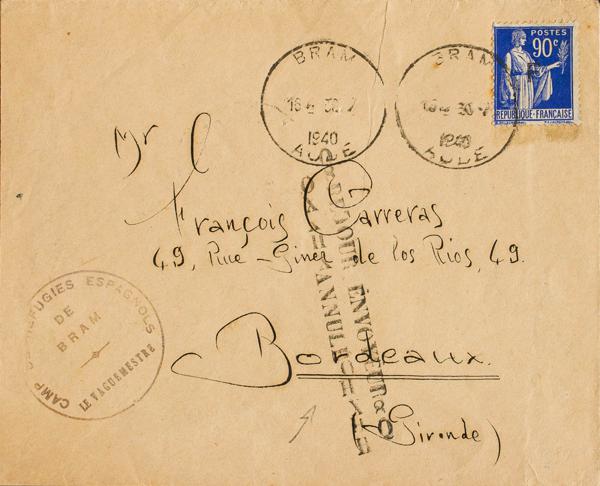 POSTES
90c
REPUBLIQUE-FRANÇAISE
BRAM
30-7
1940
AUDE
BRAM
30-7
1940
AUDE
Mr
François Carreras
49, Rue-Giner de los Rios, 49.
Bordeaux
(Gironde)
CAMP DE REFUGIES ESPAGNOLS
DE
BRAM
LE VAGUEMESTRE
RETOUR
ENVOYEUR